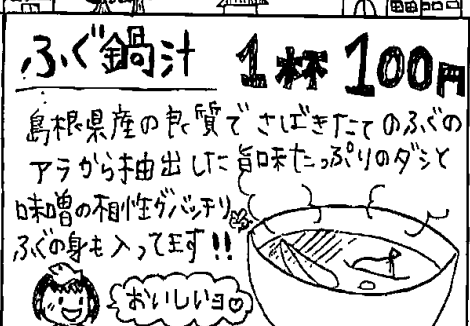 ふぐ鍋汁 1杯 100円
島根県産の良質でさばきたてのふぐの
アラから抽出した旨味たっぷりのダシと
味噌の相性がバッチリ
ふぐの身も入ってます!!
おいしいヨ♡